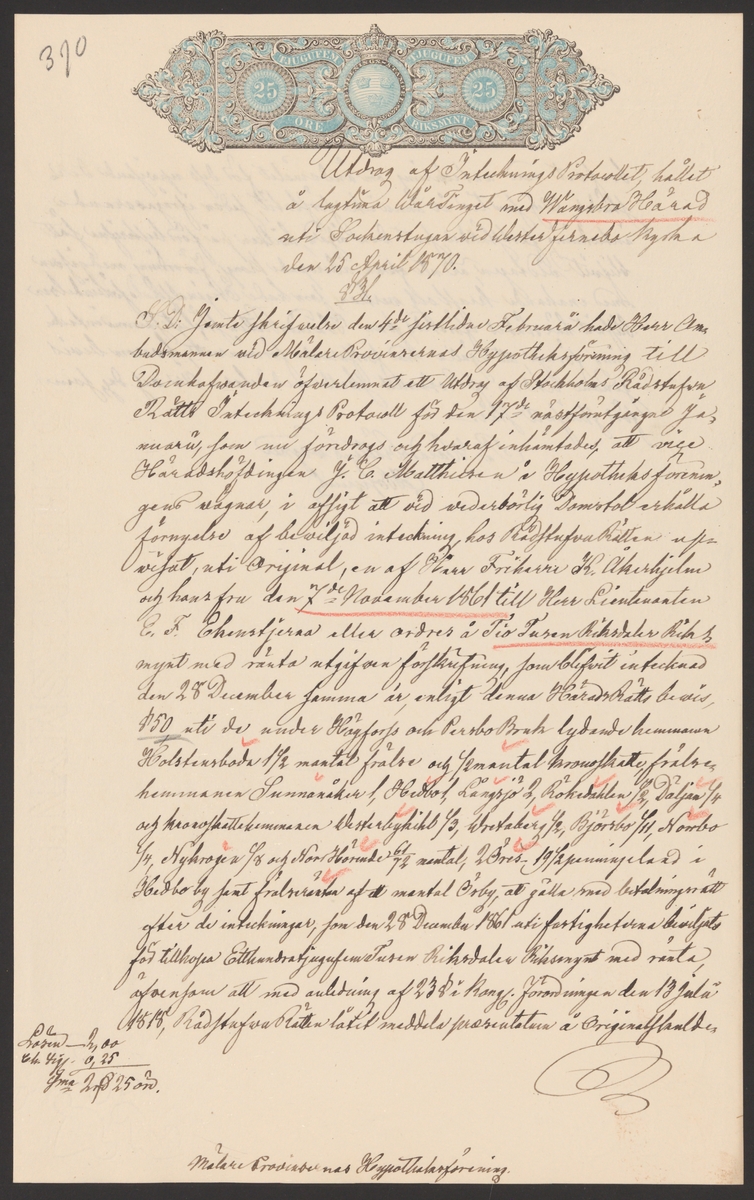 390
TJUGUFEM TJUGUFEM
25 25
ÖRE RIKSMYNT
Utdrag af InteckningsProtocollet, hållet
å lagtima WårTinget med Wangsbro Härad
uti Sockenstugan vid Wester Fernebo Kyrka
den 25 April 1870.
§ 31.
S. D. Jemte skrifvelse den 4de sistlidne Februarii hade Herr Om-
budsmannen vid MälareProvinsernas Hypotheksförening till
Domhafwanden öfverlemnat ett Utdrag af Stockholms Rådstufvu
Rätts InteckningsProtocoll för den 17de nästförutgångne Ja-
nuarii, som nu föredrogs och hvaraf inhämtades, att vice
Häradshöfdingen J. C. Matthiesen å Hypotheksförenin-
gens vägnar, i afsigt att vid wederbörlig Domstol erhålla
förnyelse af beviljad inteckning, hos RådstufvuRätten upp-
visat, uti Original, en af Herr Friherre K. Åkerhjelm
och hans fru den 7de November 1861 till Herr Lieutenanten
C. F. Ehrenstjerna eller ordres å Tio Tusen Riksdaler Riks-
mynt med ränta utgifven förskrifning, som blifvit intecknad
den 28 December samma år enligt denna HäradsRätts bewis,
§ 50 uti de under Högforss och Persbo Bruk lydande hemmanen
Holstensbode 1 1/2 mantal frälse och 1/2 mantal kronoskatte, frälse-
hemmanen Sunnanåker 1, Hedbo 1, Långsjö 2, Rökedahlen 1/2, Däljan 1/4
och kronoskattehemmanen Westerbykihl 1/3, Wretaberg 1/2, Björsbo 1/4, Norrbo
1/4, Nykrogen 1/8 och Norr Hörende 61/72 mantal, 2 Öres 19 1/2 penningeland i
Hedbo by samt frälseräntan af ett mantal Örby, att gälla med betalningsrätt
efter de inteckningar, som den 28 December 1861 uti fastigheterna beviljats
för tillhopa Etthundratjugufem Tusen Riksdaler Riksmynt med ränta,
äfvensom att med anledning af 23 § i Kongl. Förordningen den 13 Julii
1818, RådstufvuRätten låtit meddela præsentatum å Originalskulde-
Lösen 2,00
Ch. Sig. 0,25
Sma 2 rd 25 öre.
MälareProvinsernas Hypotheksförening.